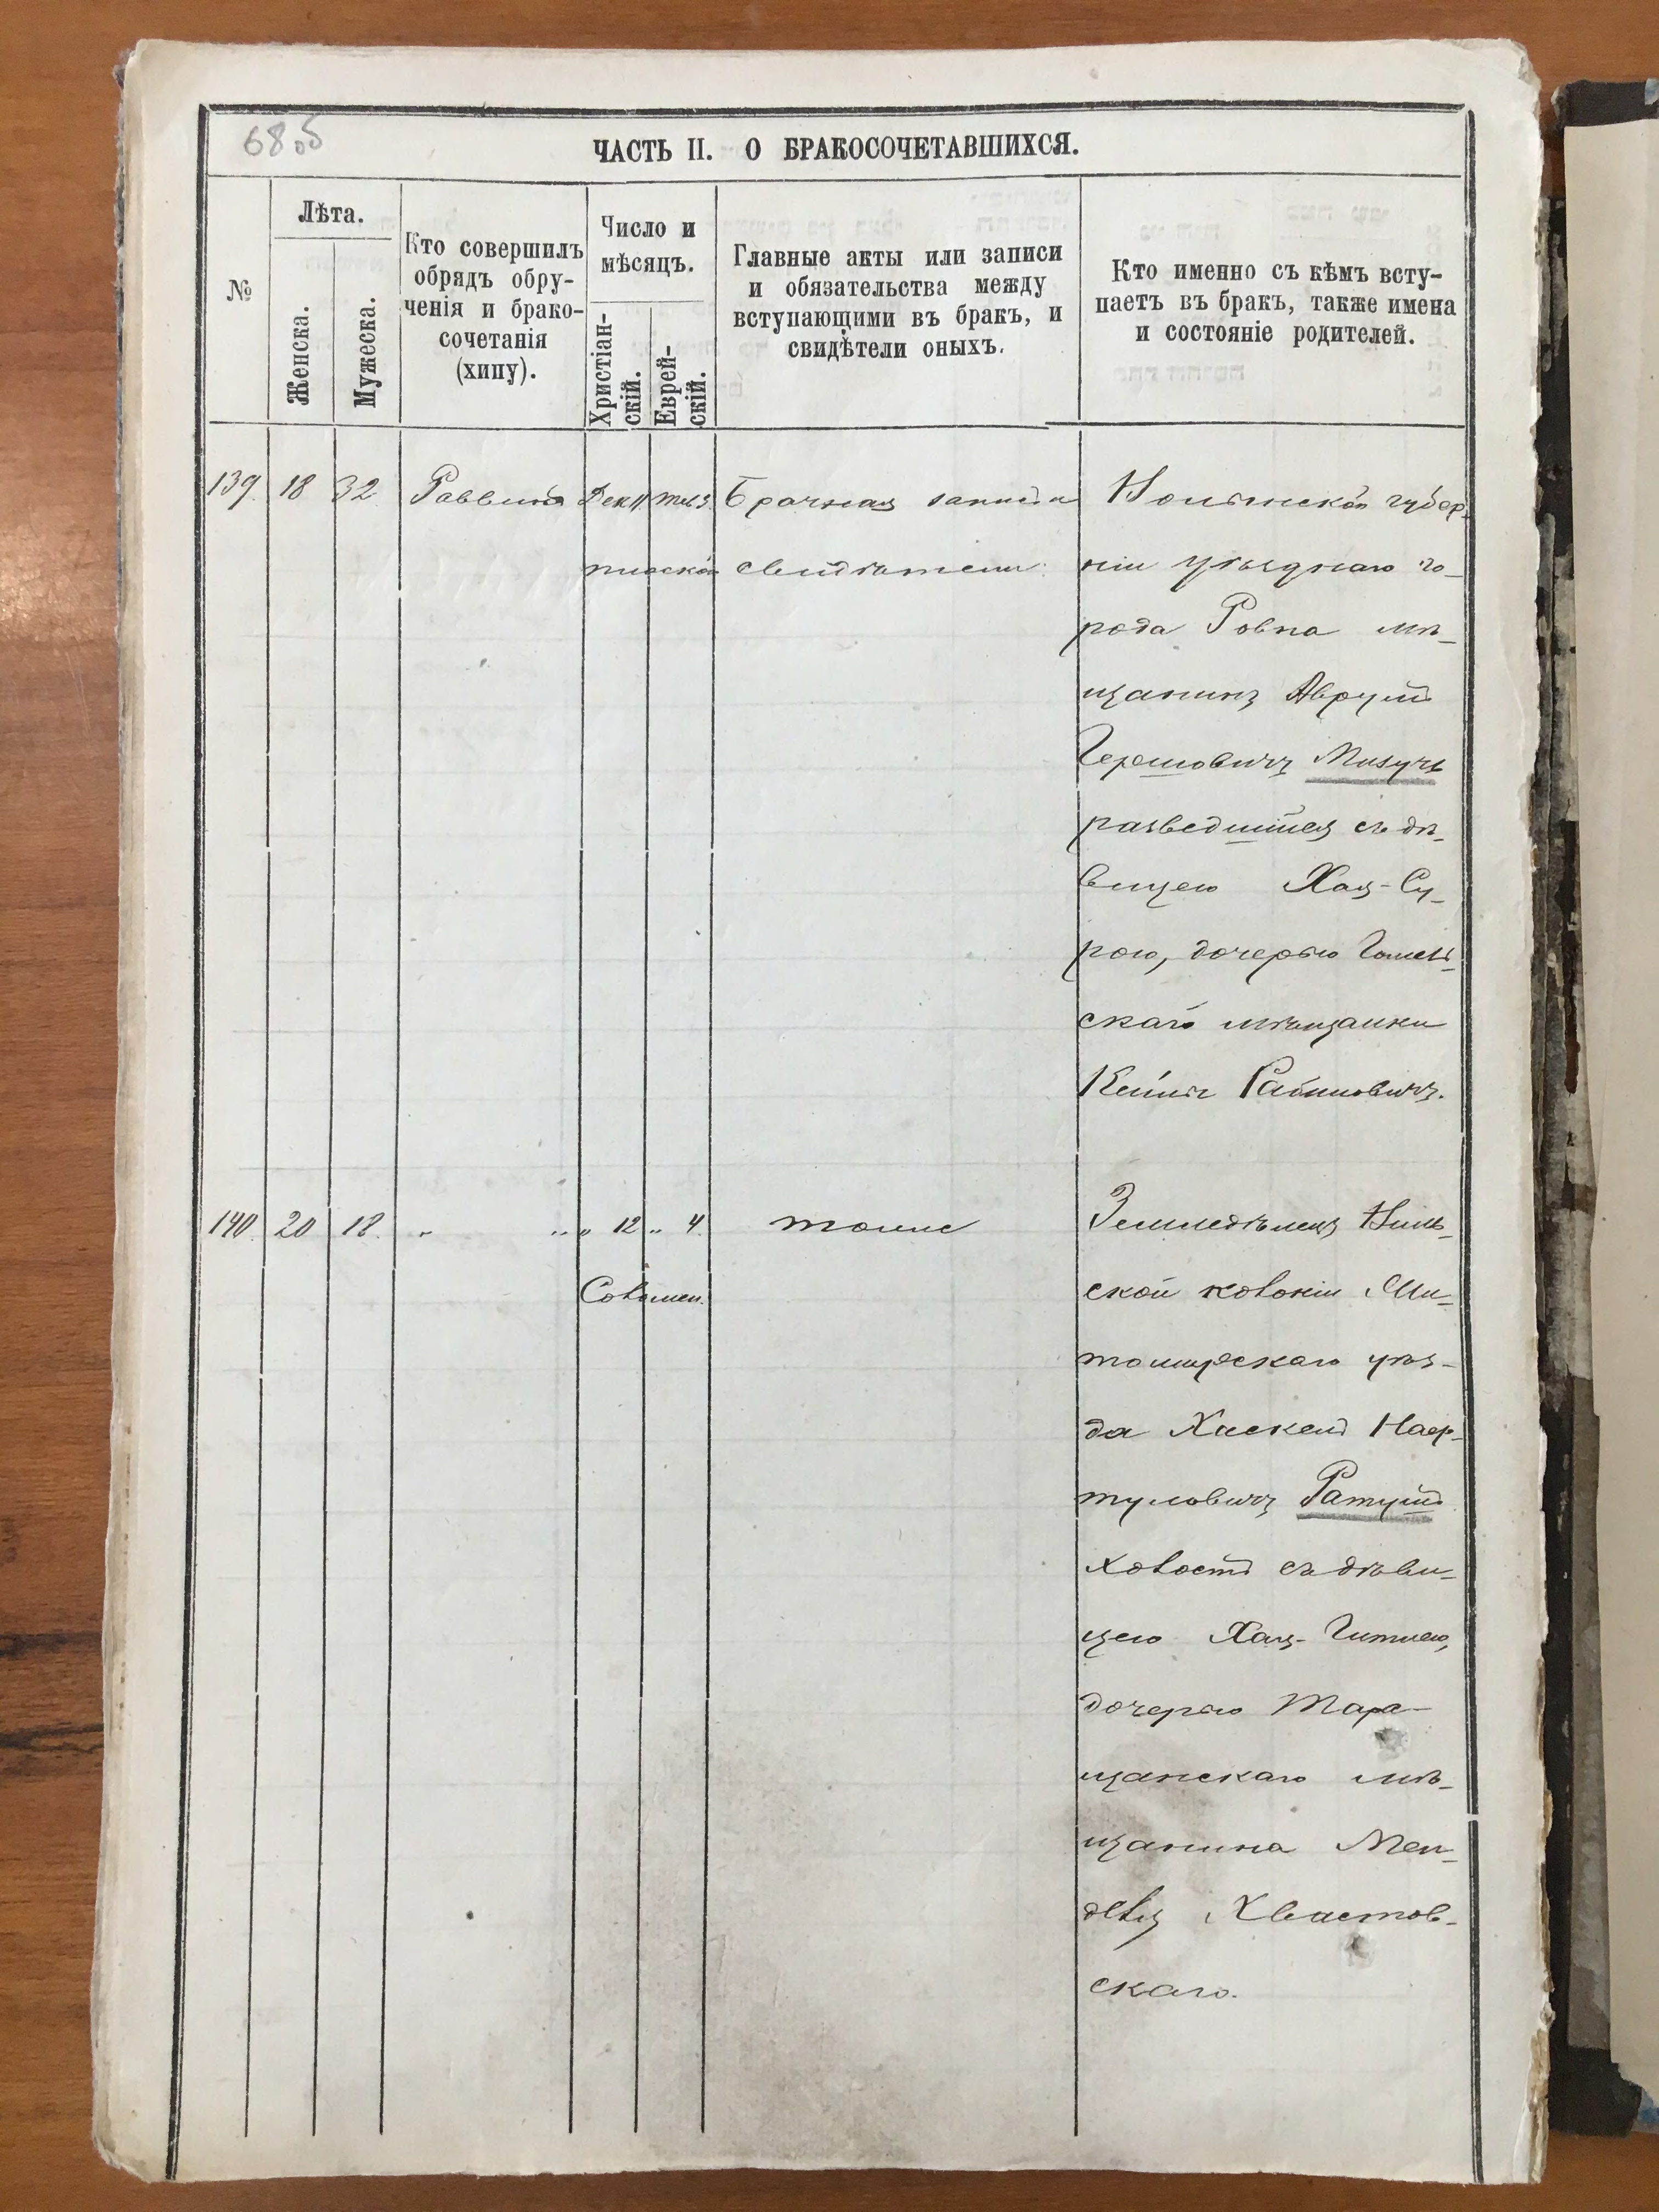 68об
ЧАСТЬ II. О БРАКОСОЧЕТАВШИХСЯ.
№
Лѣта.
Женска.
Мужеска.
Кто совершилъ
обрядъ обру-
ченія и брако-
сочетанія
(хипу).
Число и
мѣсяцъ.
Христіан-
скій.
Еврей-
скій.
Главные акты или записи
и обязательства между
вступающими въ бракъ, и
свидѣтели оныхъ.
Кто именно съ кѣмъ всту-
паетъ въ бракъ, также имена
и состояніе родителей.
139. 18 32 Раввинъ Дек 11 3. Брачная запись
свидѣтели
Волынской губер-
ніи уѣзднаго го-
рода Ровна мѣ-
щанинъ Аврумъ
Гершовичъ Мизучъ
разведшійся съ дѣ-
вицею Хая-Су-
рою, дочерью Гомель-
скаго мѣщанки
Рабиновичъ.
140. 20 18. " " " 12 " 4. тоже
Земледѣлецъ
ской колоніи Жи-
томирскаго уѣз-
да Хаскель Наф-
туловичъ Ратушъ
холостъ съ дѣви-
цею Хая-Гитлею,
дочерью Тара-
щанскаго мѣ-
щанина Мен-
деля Хвастов-
скаго.